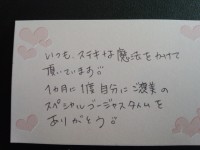 いつも、ステキな魔法をかけて
頂いています
1カ月に1度自分にご褒美の
スペシャルゴージャスタイムを
ありがとう